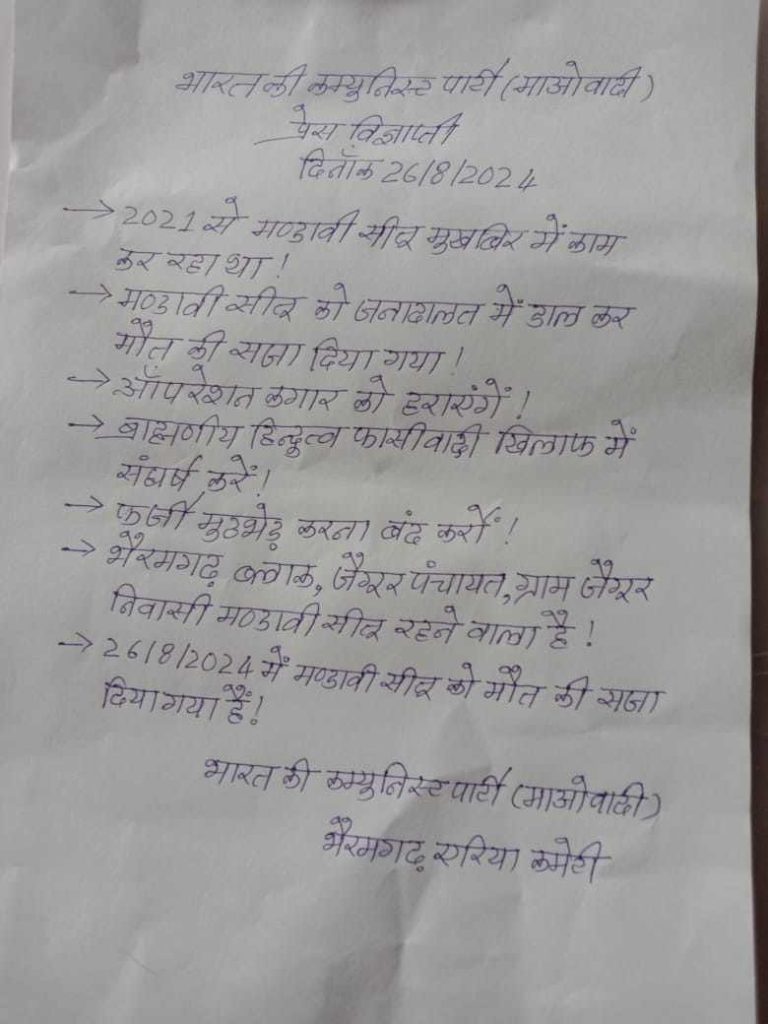 भारत की कम्युनिस्ट पार्टी (माओवादी)
प्रेस विज्ञाप्ती
दिनाँक 26/8/2024
→ 2021 से मण्डावी सीदू मुखबिर में काम
कर रहा था !
→ मण्डावी सीदू को जनादालत में डाल कर
मौत की सजा दिया गया !
→ ऑपरेशन कगार को हराएंगें !
→ ब्राह्मणीय हिन्दुत्व फासीवादी खिलाफ में
संघर्ष करें !
→ फर्जी मुठभेड़ करना बंद करों !
→ भैरमगढ़ ब्लाक, जैगूर पंचायत, ग्राम जैगूर
निवासी मण्डावी सीदू रहने वाला है !
→ 26/8/2024 में मण्डावी सीदू को मौत की सजा
दिया गया हैं !
भारत की कम्युनिस्ट पार्टी (माओवादी)
भैरमगढ़ एरिया कमेटी